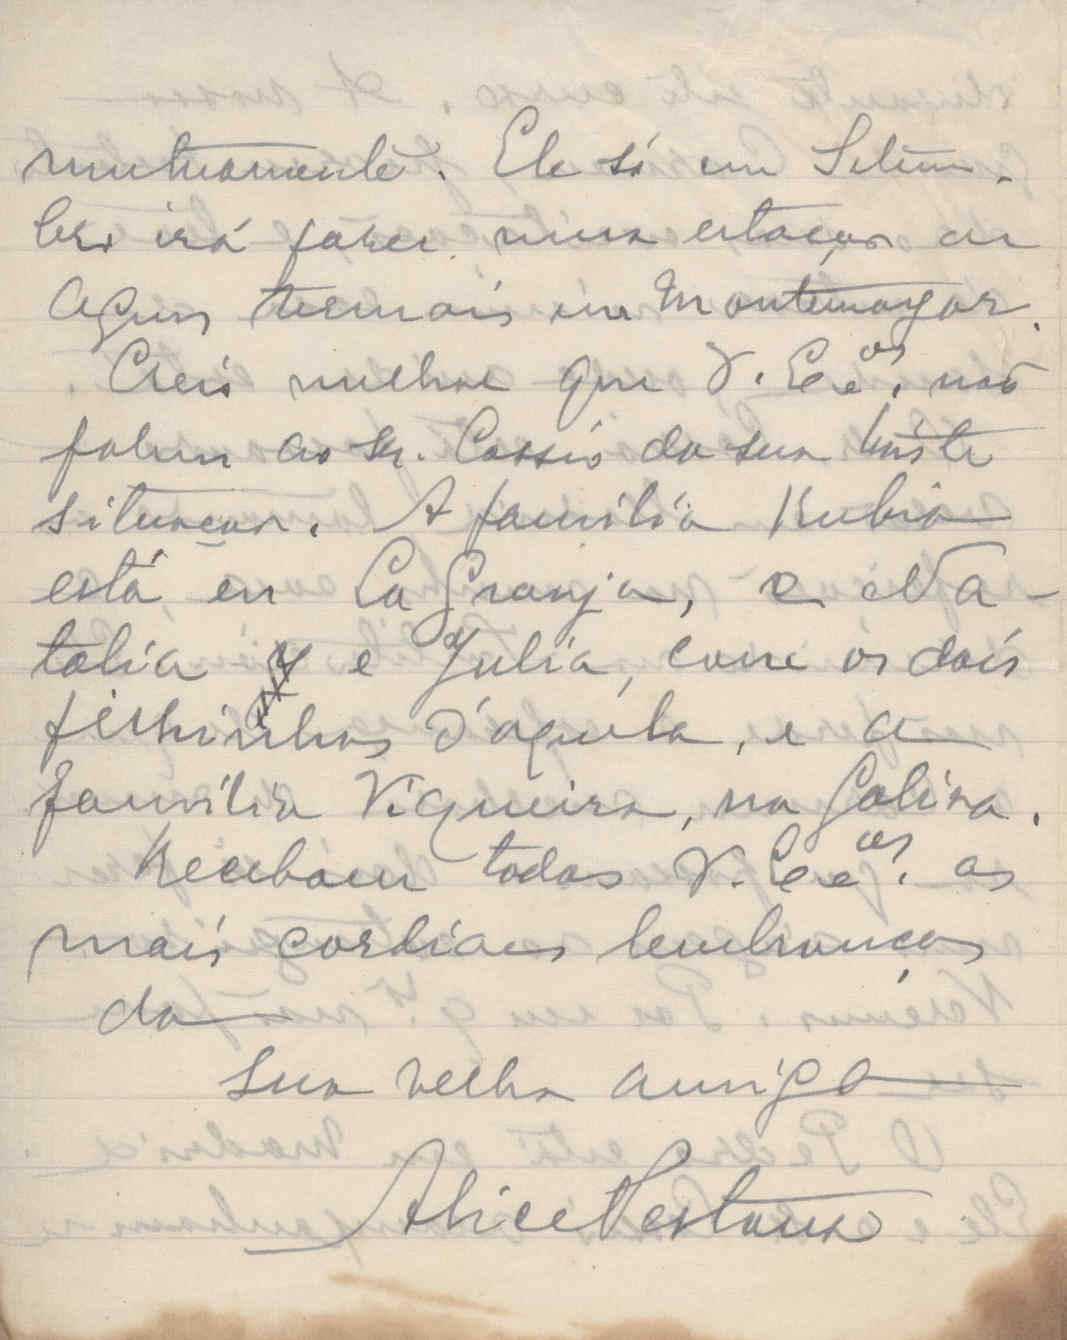 mutuamente. Ele só em Setem-
bro irá fazer uma estação de
aguas termais em Montemayor.
Creio melhor que V. Ex.as não
falem ao Sr. Cossío da sua triste
situação. A familia Rubio
está en La Granja, e Na-
talia e Julia, com os dois
filhinhos d'aquela, e a
familia Viqueira, na Galiza.
Recebam todas V. Ex.as as
mais cordiaes lembranças
da
sua velha amiga
Alice Pestana